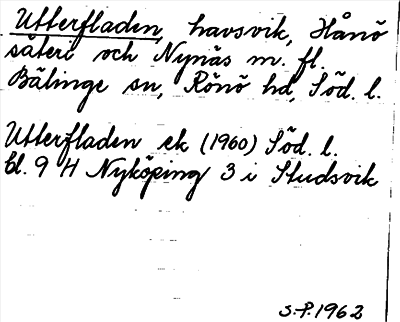 Utterfladen, havsvik, Hånö
säteri och Nynäs m. fl.
Bälinge sn, Rönö hd, Söd. l.
Utterfladen ek (1960) Söd. l.
bl. 9 H Nyköping 3 i Studsvik
S.P. 1962